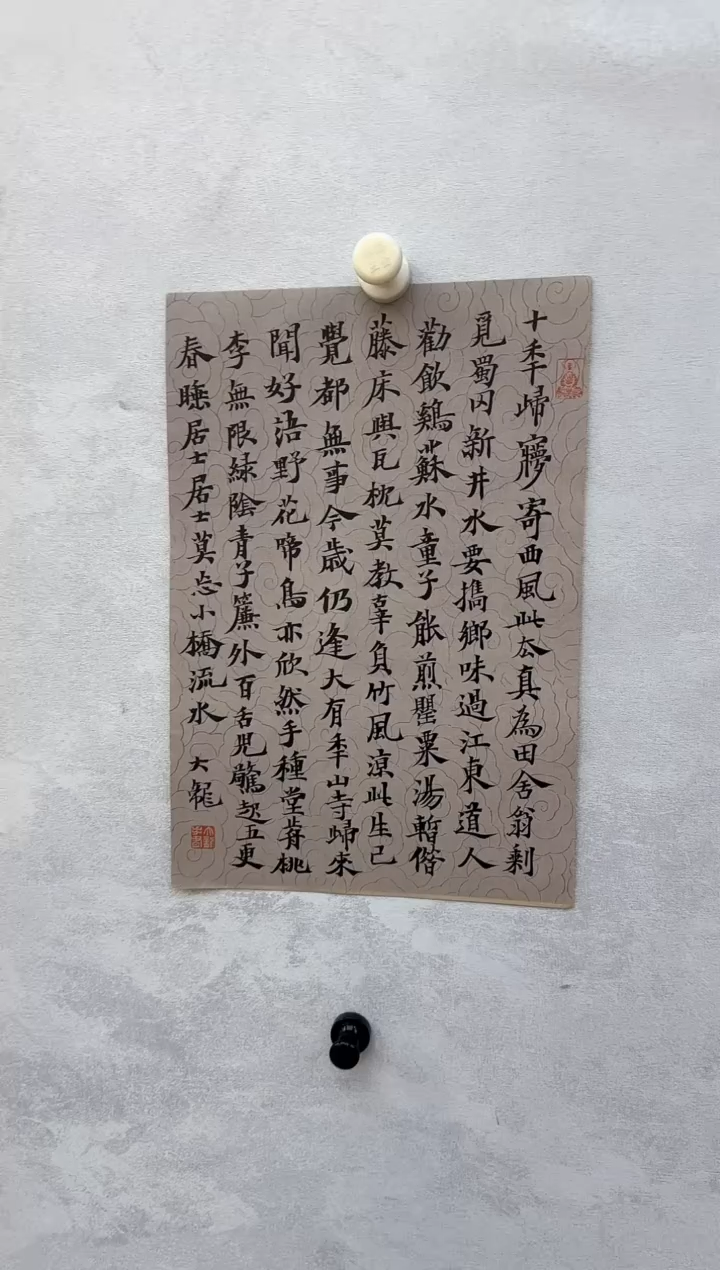 十秊歸夢寄西風此去真為田舍翁剩
覓蜀冈新井水要攜鄉味過江東道人
勸飲鷄蘇水童子能煎罌粟湯暫借
藤床與瓦枕莫教辜負竹風涼此生已
覺都無事今歲仍逢大有秊山寺歸來
聞好語野花啼鳥亦欣然手種堂前桃
李無限緑陰青子簾外百舌兒驚起五更
春睡居士居士莫忘小橋流水
大龍